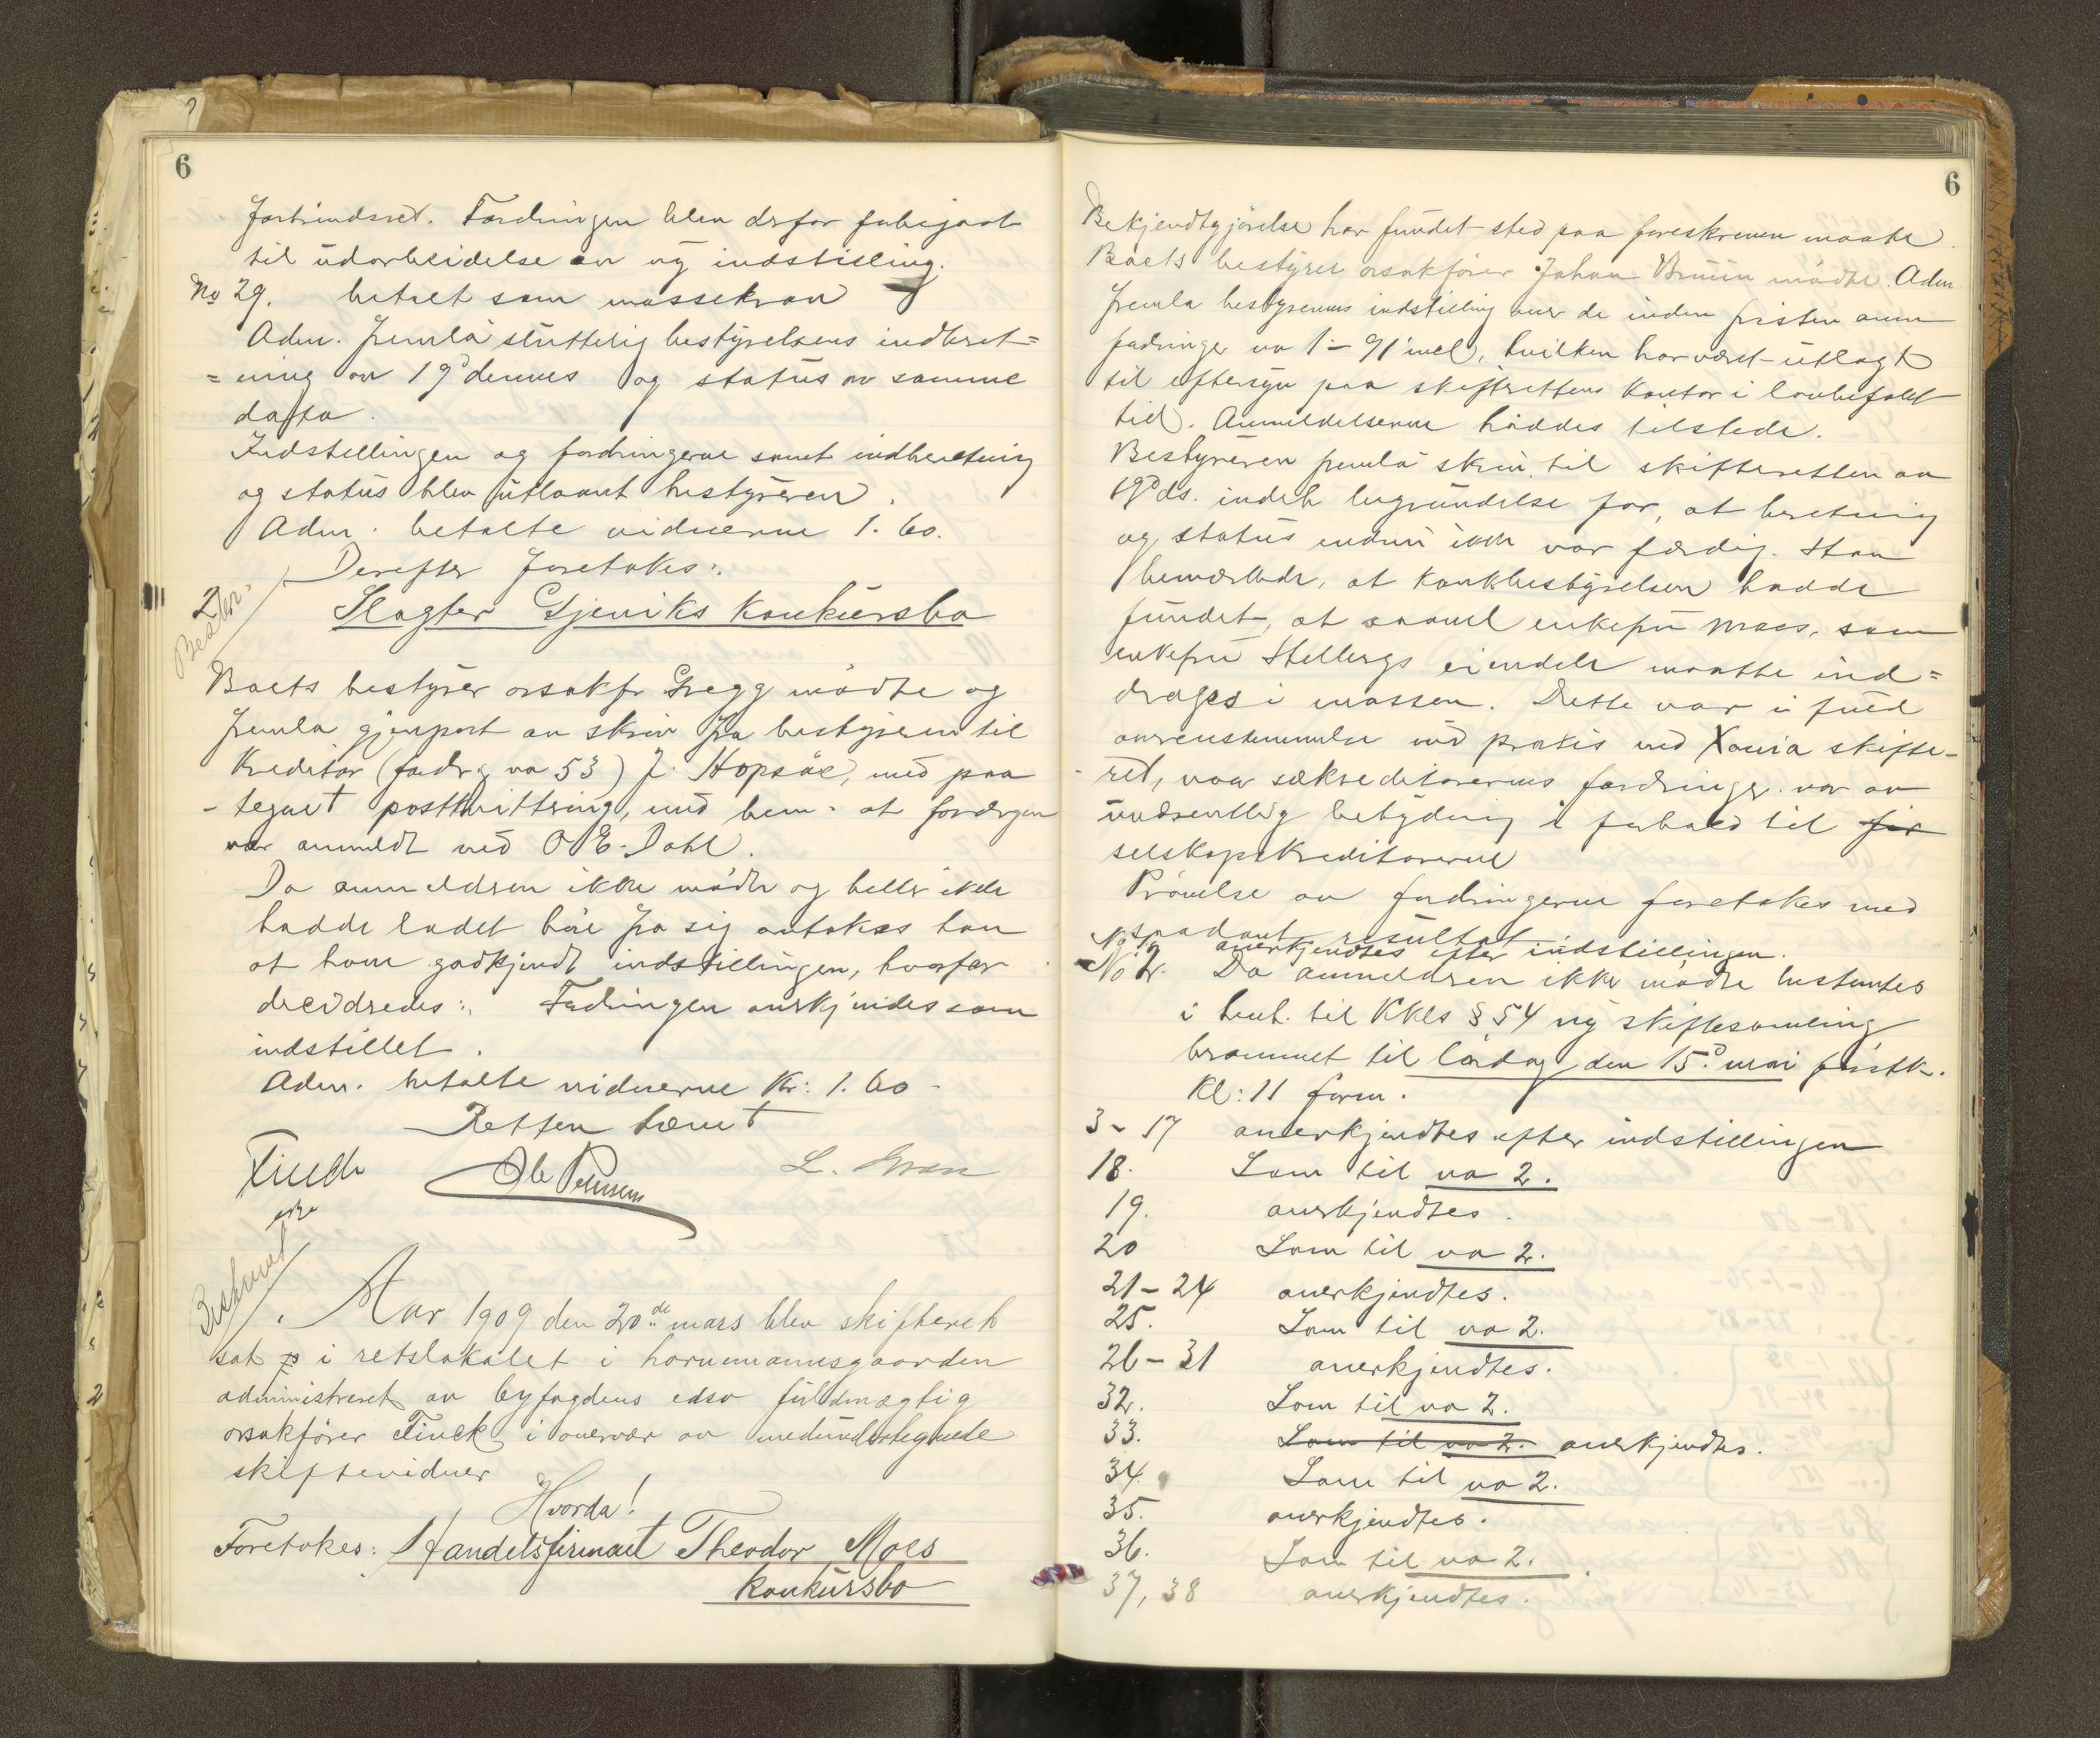 6
fortrindsret. Fordringen blev derfor forbigaat
til udarbeidelse av ny indstilling.
No 29. betalt som massekrav
Adm. fremla sluttelig bestyrelsens indberet=
=ning av 19d dennes og status av samme
dato.
Indstillingen og fordringerne samt indberetning
og status blev utlaant bestyreren.
Adm. betalte vidnerne 1.60.
Derefter foretokes:
2
Slagter Gjeviks Konkursbo
Boets bestyrer orsakfr Gregg mødte og
fremla gjenpart av skriv fra bestyreren til
Kreditor (fordr. no 53) J. Hopsøe, med paa
-tegnet postkvittring, med bem. at fordrgen
var anmeldt ved O E. Dahl.
Da anmelderen ikke mødte og heller ikke
hadde ladet høre fra sig antokes han
at have godkjendt indstillingen, hvorfor
decideredes: Fordringen anerkjendes som
indstillet.
Adm. betalte vidnerne Kr: 1.60-
Retten hævet
Finck Ole Pedersen L. Gran
Beskrevet
Aar 1909 den 20de mars blev skifteret
sat i retslokalet i hornemannsgaarden
administreret av byfogdens edsv fuldmægtig
orsakfører Finck i overvær av medundertegnede
skiftevidner
Hvorda!
Foretokes: Handelsfirmaet Theodor Moes
konkursbo
6
Bekjendtgjørelse har fundet sted paa foreskreven maate.
Boets bestyrer orsakfører Johan Bruun mødte. Adm.
fremla bestyrerens indstilling over de inden fristen anm
fordringer no 1-91 incl, hvilken har været utlagt
til eftersyn paa skifterettens kontor i lovbefalet
tid. Anmeldelserne haddes tilstede.
Bestyreren fremla skriv til skifteretten av
19d ds. indeh begrundelse for, at beretning
og status endnu ikke var færdig. Han
bemærkede, at konkbestyrelsen hadde
fundet, at saavel enkefru Moes, som
enkefru Stellergs eiendele maatte ind=
drages i massen. Dette var i fuld
overensstemmelse med praxis ved Xania skifte-
-ret, naar særkreditorernes fordringer var av
uvæsentlig betydning i forhold til for
selskapskreditorerne
Prøvelse av fordringerne foretokes med
saadant resultat
No 1. anerkjendtes efter indstillingen.
No 2. Da anmelderen ikke mødte bestemtes
i henh. til KKls § 54 ny skiftesamling
berammet til lørdag den 15d mai førstk.
Kl: 11 form.
3-17 anerkjendtes efter indstillingen
18. Som til no 2.
19. anerkjendtes.
20 Som til no 2.
21-24 anerkjendtes.
25. Som til no 2.
26-31 anerkjendtes.
32. Som til no 2.
33. Som til no 2. anerkjendtes.
34. Som til no 2.
35. anerkjendtes.
36. Som til no 2.
37, 38 anerkjendtes.